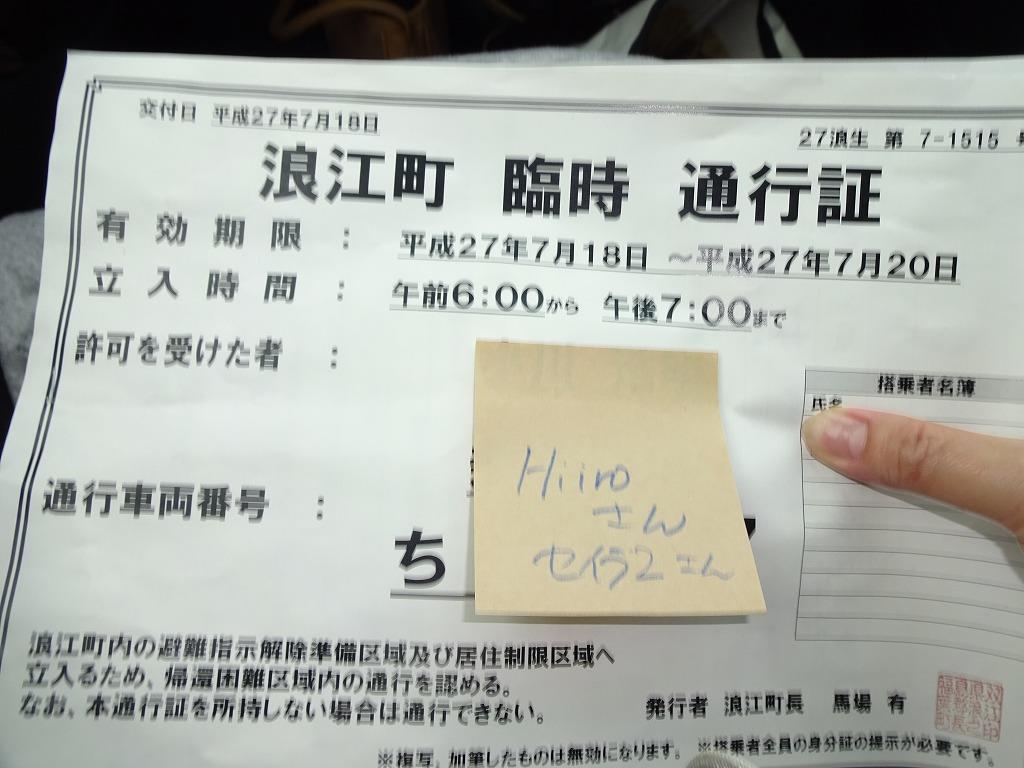 交付日 平成27年7月18日
27浪生 第 7-1515 号
浪江町 臨時 通行証
有効期限 : 平成27年7月18日 ~平成27年7月20日
立入時間 : 午前6:00から 午後7:00まで
許可を受けた者 :
搭乗者名簿
氏名
Hiiro
さん
セイラ2さん
通行車両番号 :
ち
浪江町内の避難指示解除準備区域及び居住制限区域へ
立入るため、帰還困難区域内の通行を認める。
なお、本通行証を所持しない場合は通行できない。
発行者 浪江町長 馬場 有
※複写、加筆したものは無効になります。 ※搭乗者全員の身分証の提示が必要です。